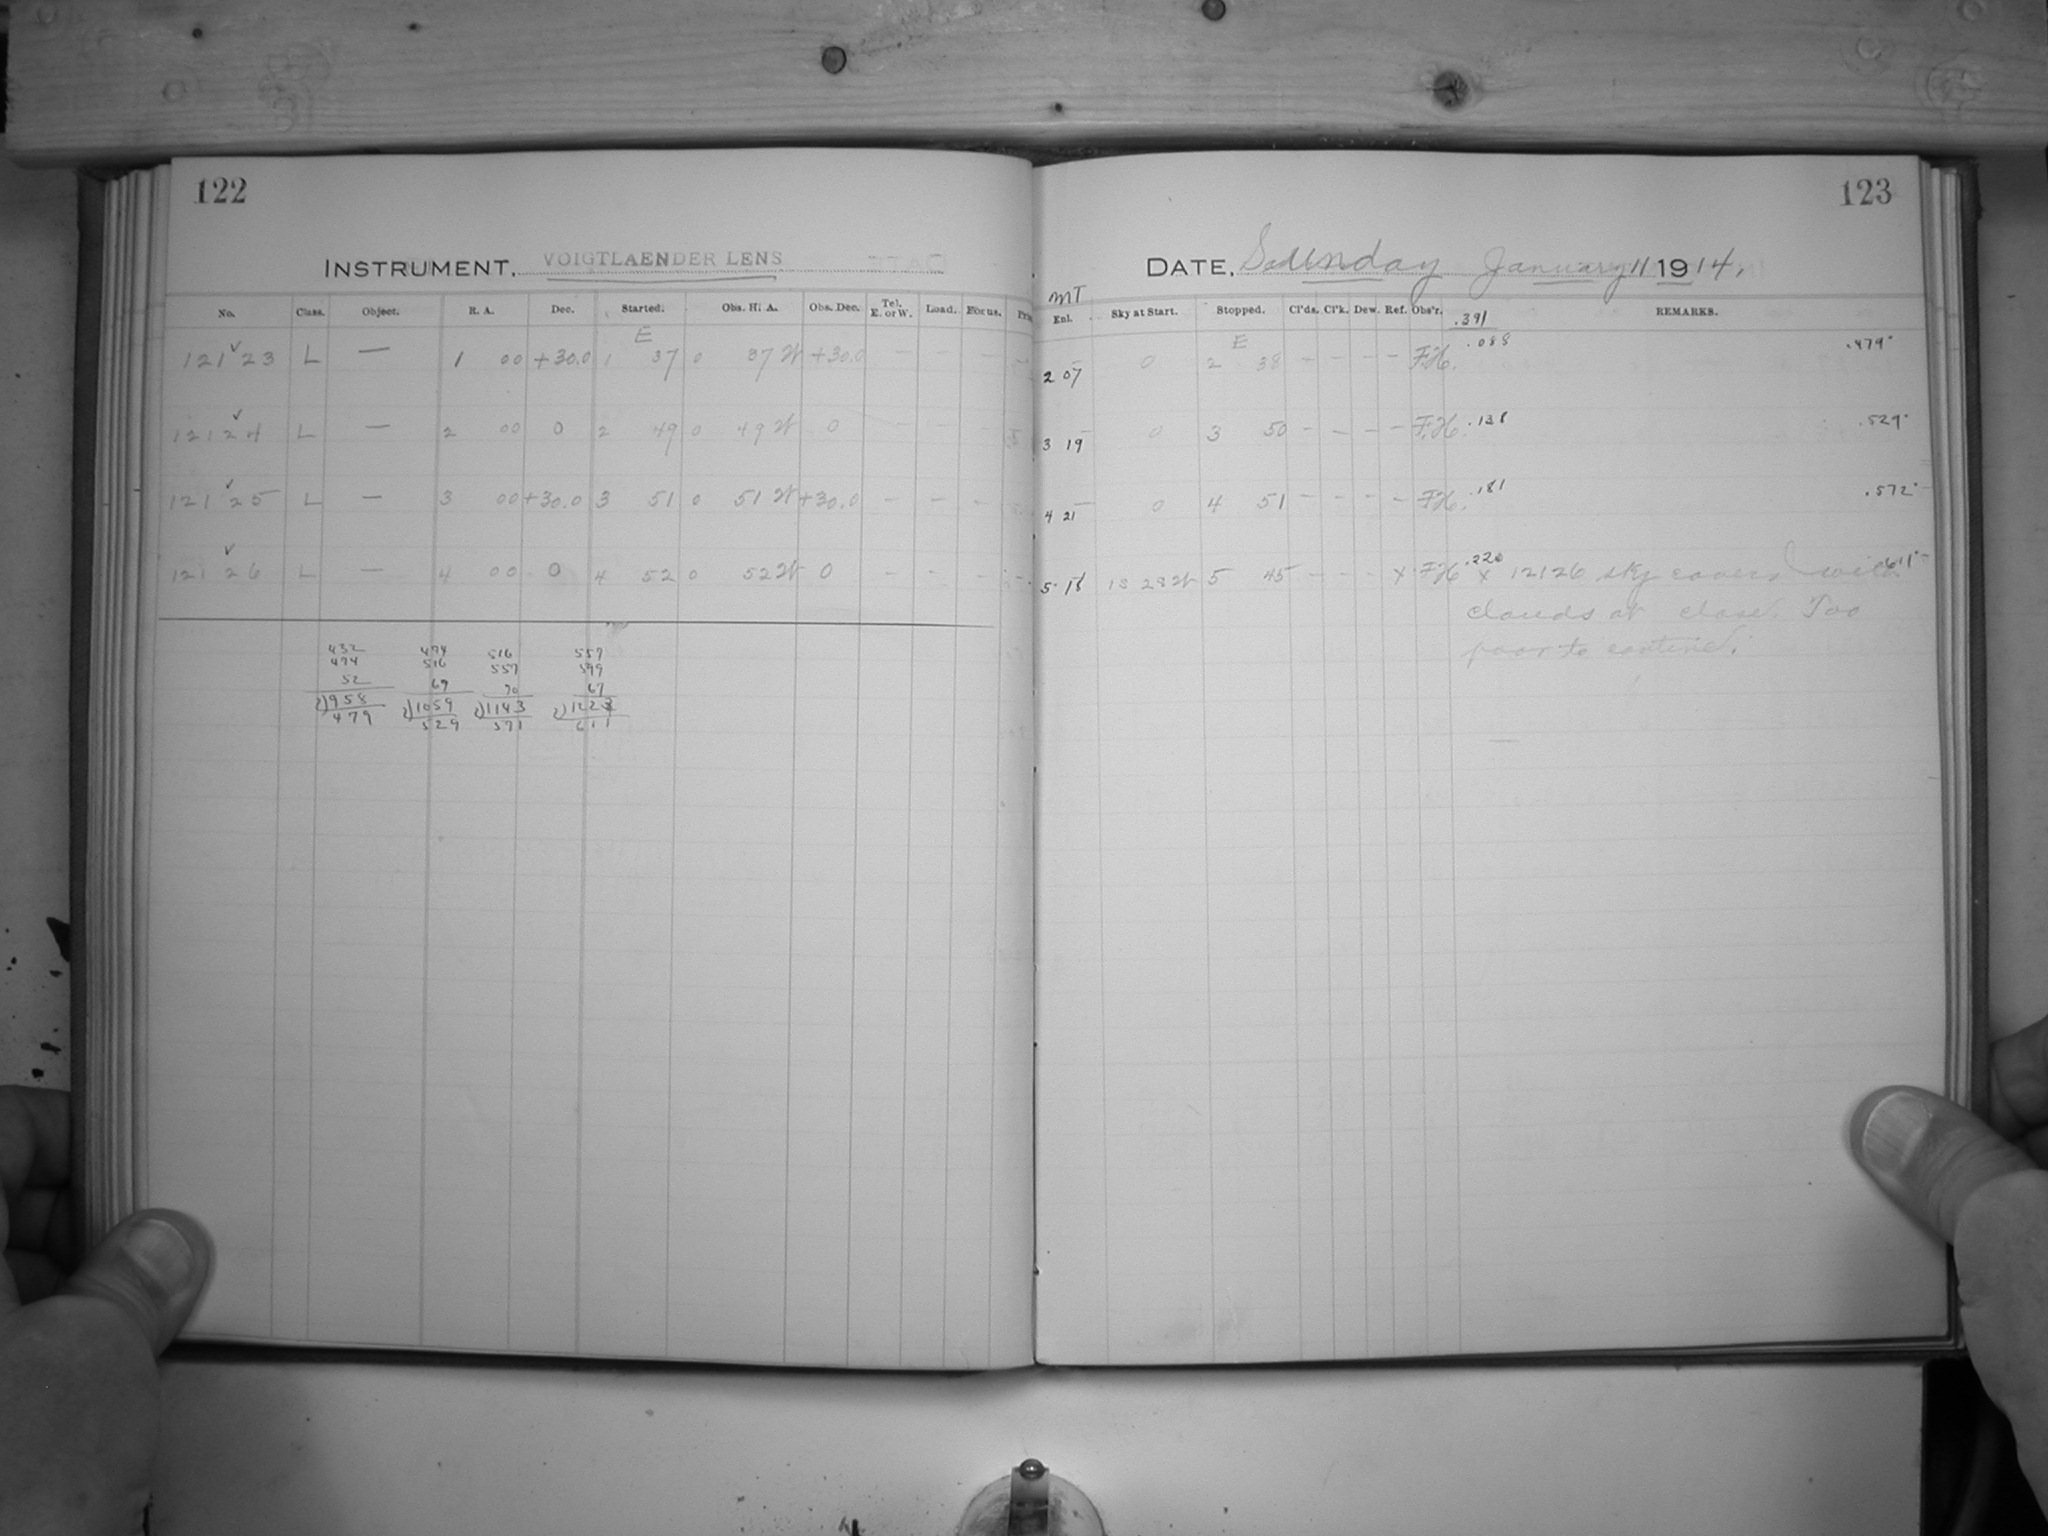 122
INSTRUMENT, VOIGTLAENDER LENS
No. Class. Object. R. A. Dec. Started. Obs. H. A. Obs. Dec. Tel. E. or W. Load. Focus.
E
12123 L — 1 00 +30.0 1 37 0 37 W +30.0 – – –
12124 L — 2 00 0 2 49 0 49 W 0 – – –
12125 L — 3 00 +30.0 3 51 0 51 W +30.0 – – –
12126 L — 4 00 0 4 52 0 52 W 0 – – –
432 474 516 557
474 516 557 599
52 69 70 67
2)958 2)1059 2)1143 2)1223
479 529 571 611
123
DATE, Sunday January 11 1914,
MT
Enl. Sky at Start. Stopped. Cl'ds. Cl'k. Dew. Ref. Obs'r. REMARKS.
.391
E
2 07 0 2 38 – – – – F.H. .088 .479
3 19 0 3 50 – – – – F.H. .138 .529
4 21 0 4 51 – – – – F.H. .181 .572
5 18 1S 28W 5 45 – – – x F.H. .220 x 12126 sky covered with .611
clouds at close. Too
poor to continue.